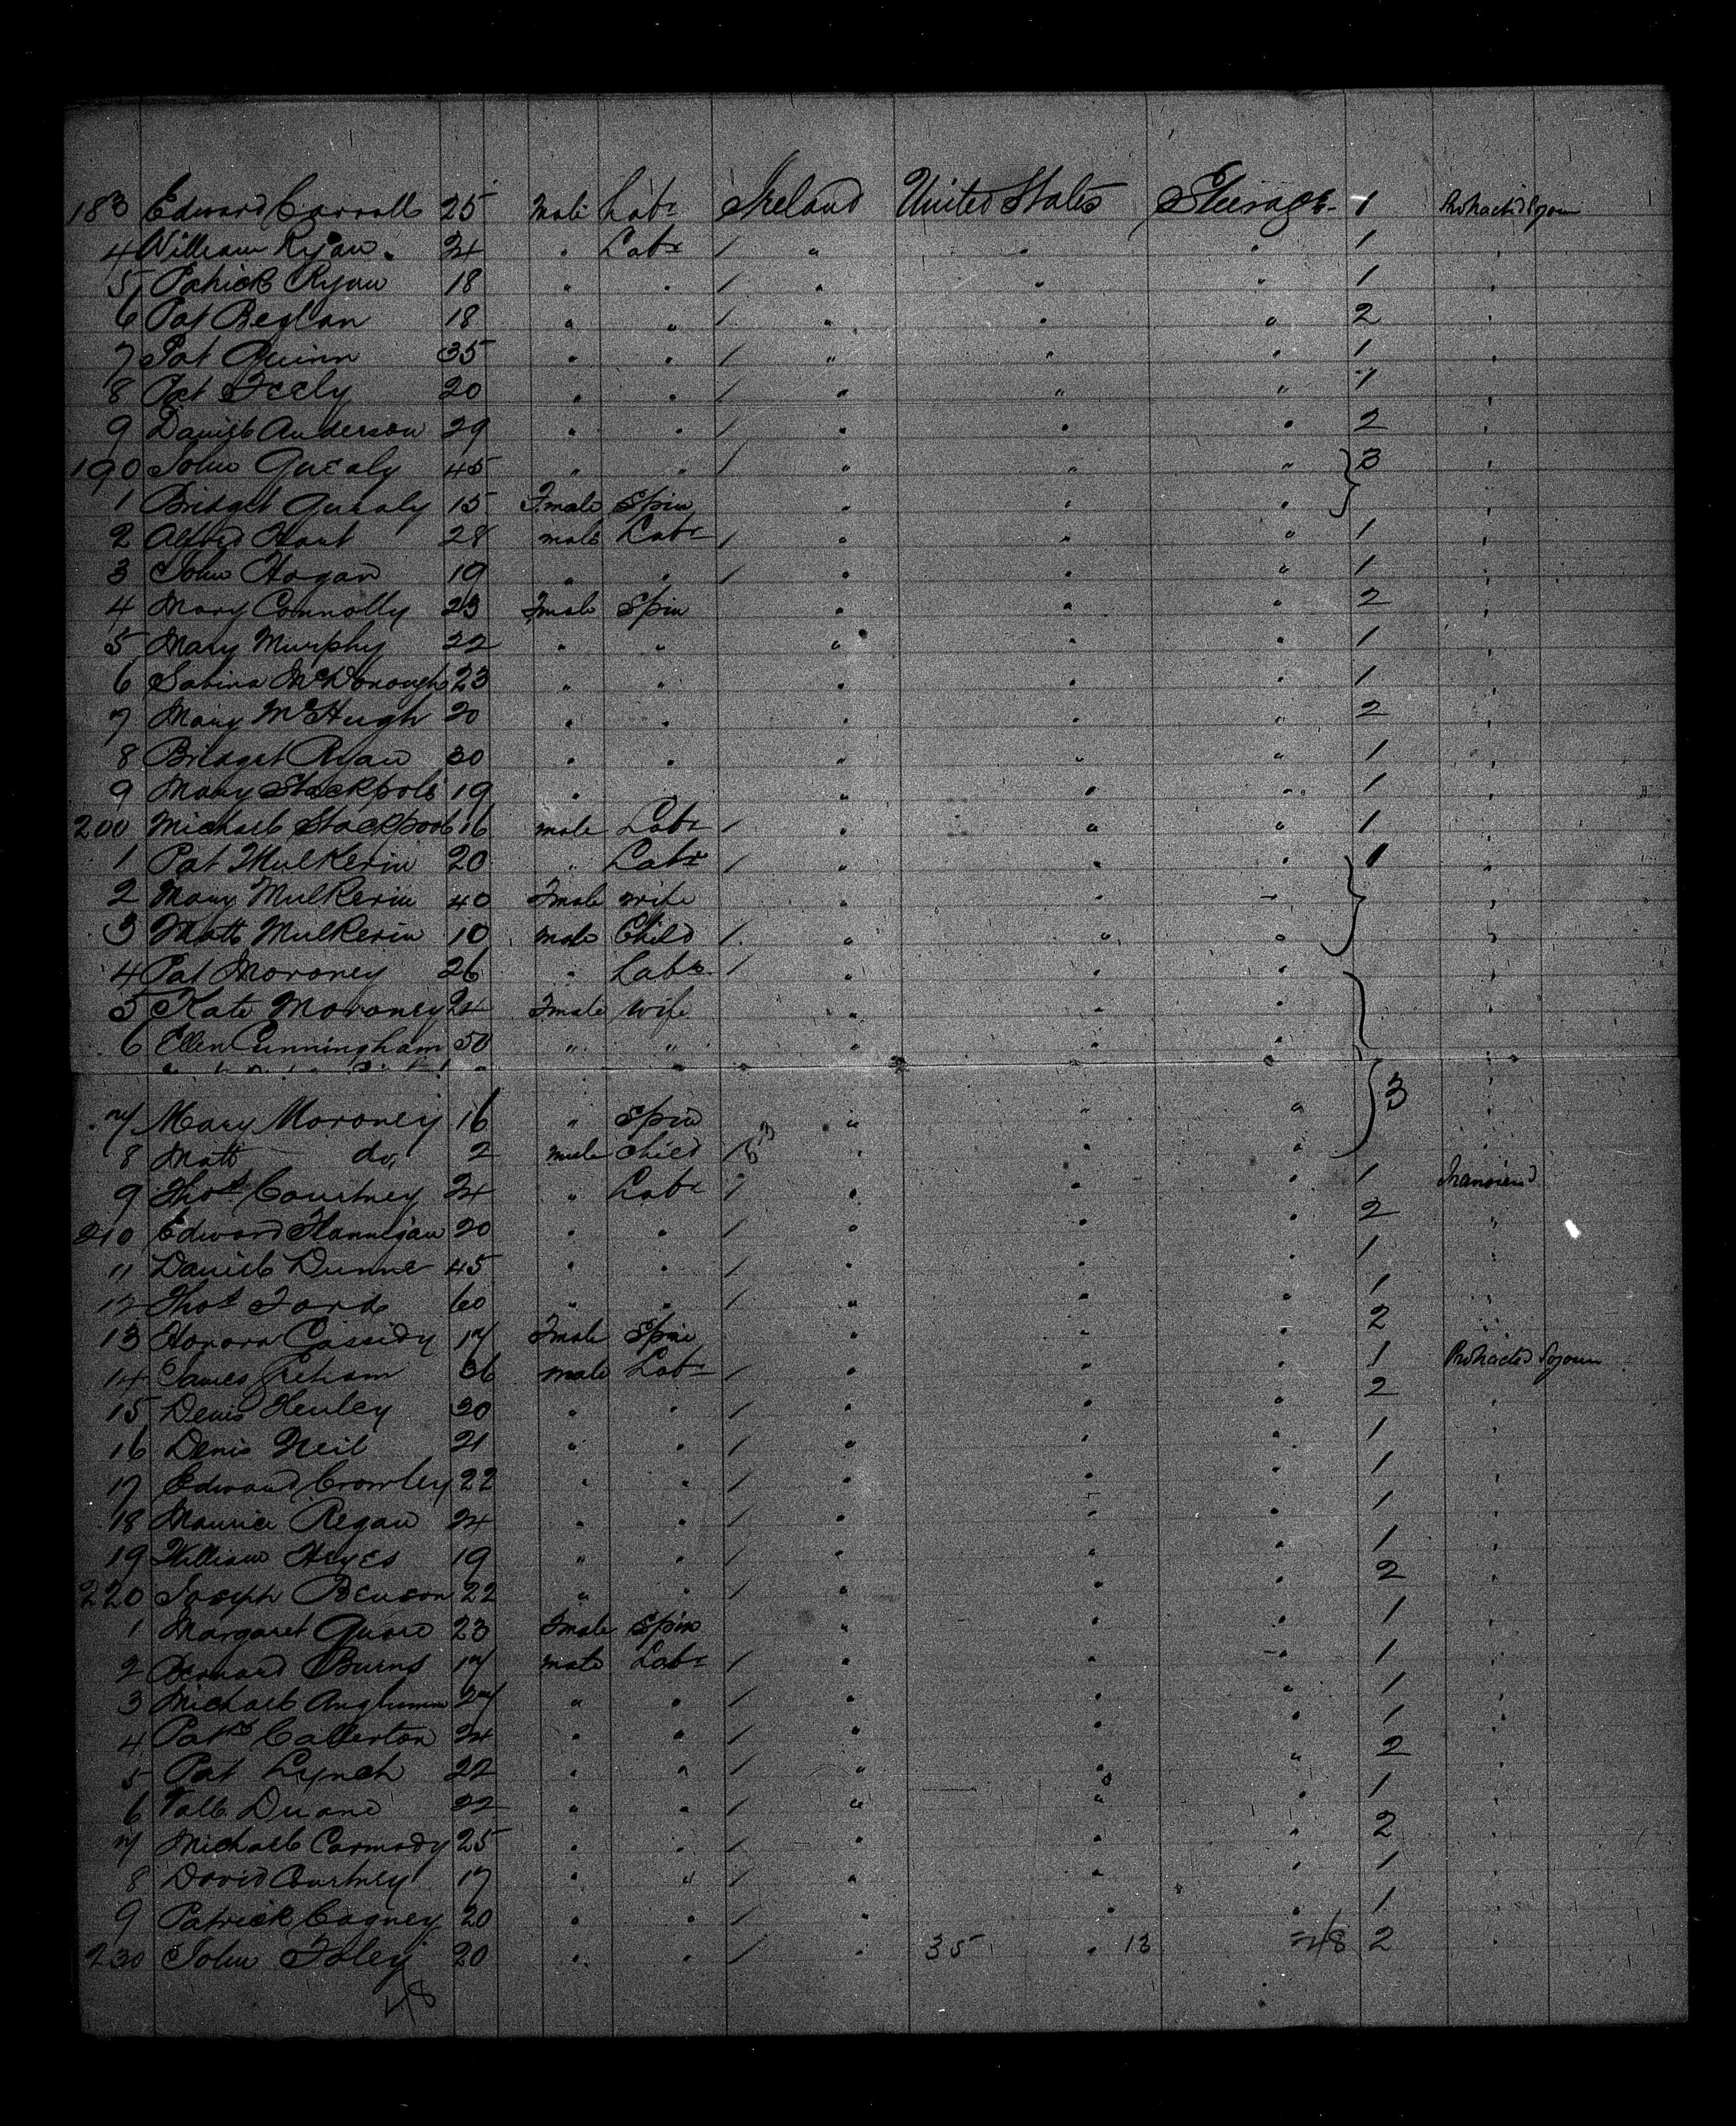 183 Edward Carroll 25 Male Labr Ireland United States Steerage 1 Protracted Sojourn
4 William Ryan 24 " Labr / " " " 1 "
5 Patrick Ryan 18 " " / " " " 1 "
6 Pat Beglan 18 " " / " " " 2 "
7 Pat Quinn 35 " " / " " " 1 "
8 Pat Feely 20 " " / " " " 1 "
9 Daniel Anderson 29 " " / " " " 2 "
190 John Quealy 45 " " / " " " 3 "
1 Bridget Quealy 15 Fmale Spin " " " "
2 Alfred Hart 28 male Labr / " " " 1 "
3 John Hogan 19 " " / " " " 1 "
4 Mary Connolly 23 Fmale Spin " " " 2 "
5 Mary Murphy 22 " " " " " 1 "
6 Sabina McDonough 23 " " " " " 1 "
7 Mary McHugh 20 " " " " " 2 "
8 Bridget Ryan 30 " " " " " 1 "
9 Mary Stackpole 19 " " " " " 1 "
200 Michael Stackpool 16 male Labr / " " " 1 "
1 Pat Mulkerin 20 " Labr / " " " 1 "
2 Mary Mulkerin 40 Fmale wife " " " "
3 Matt Mulkerin 10 male Child / " " " "
4 Pat Moroney 26 " Labr / " " " "
5 Kate Moroney 24 Fmale wife " " " "
6 Ellen Cunningham 50 " " " " " "
7 Mary Moroney 16 " Spin " " " 3 "
8 Matt do 2 male child / " " " "
9 Thos Courtney 24 " Labr / " " " 1 Transient
210 Edward Flannigan 20 " " / " " " 2 "
11 Daniel Dunne 45 " " / " " " 1 "
12 Thos Ford 60 " " / " " " 1 "
13 Honora Cassidy 17 Fmale Spin " " " 2 "
14 James Greham 36 male Labr / " " " 1 Protracted Sojourn
15 Denis Henley 30 " " / " " " 2 "
16 Denis Neil 21 " " / " " " 1 "
17 Edward Crowley 22 " " / " " " 1 "
18 Maurice Regan 24 " " / " " " 1 "
19 William Hayes 19 " " / " " " 1 "
220 Joseph Benson 22 " " / " " " 2 "
1 Margaret 23 Fmale Spin " " " 1 "
2 Bernard Burns 17 male Labr / " " " 1 "
3 Michael 27 " " / " " " 1 "
4 Patk Callerton 24 " " / " " " 1 "
5 Pat Lynch 22 " " / " " " 2 "
6 Duane 22 " " / " " " 1 "
7 Michael Carmody 25 " " / " " " 2 "
8 David Courtney 17 " " / " " " 1 "
9 Patrick Cagney 20 " " / " " " 1 "
230 John Foley 20 " " / " 35 " 13 =48 2 "
48